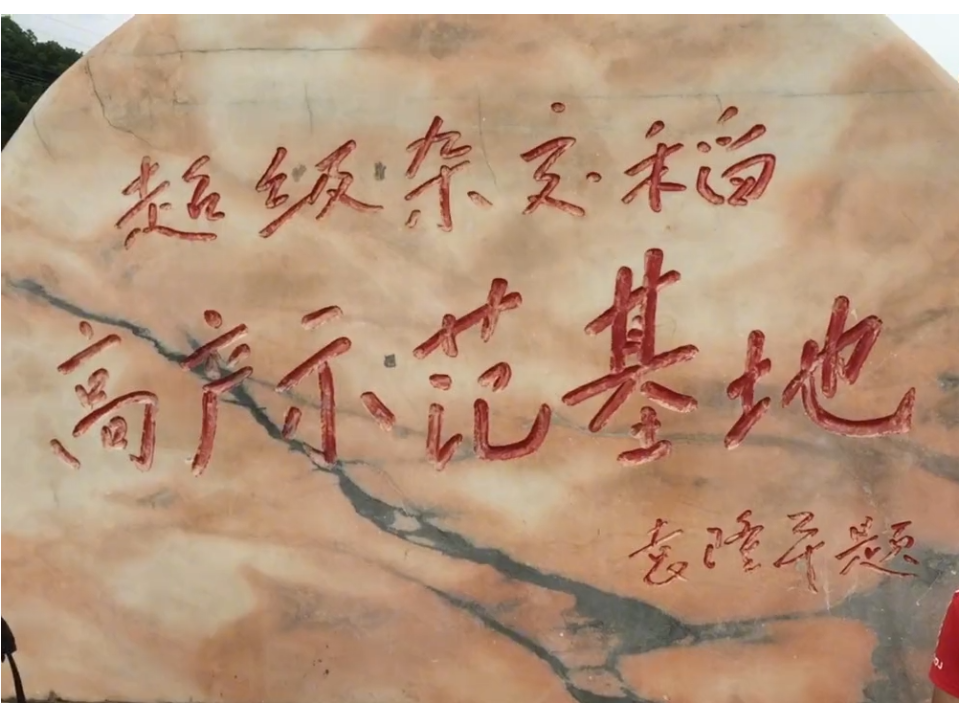 超级杂交稻
高产示范基地
袁隆平题